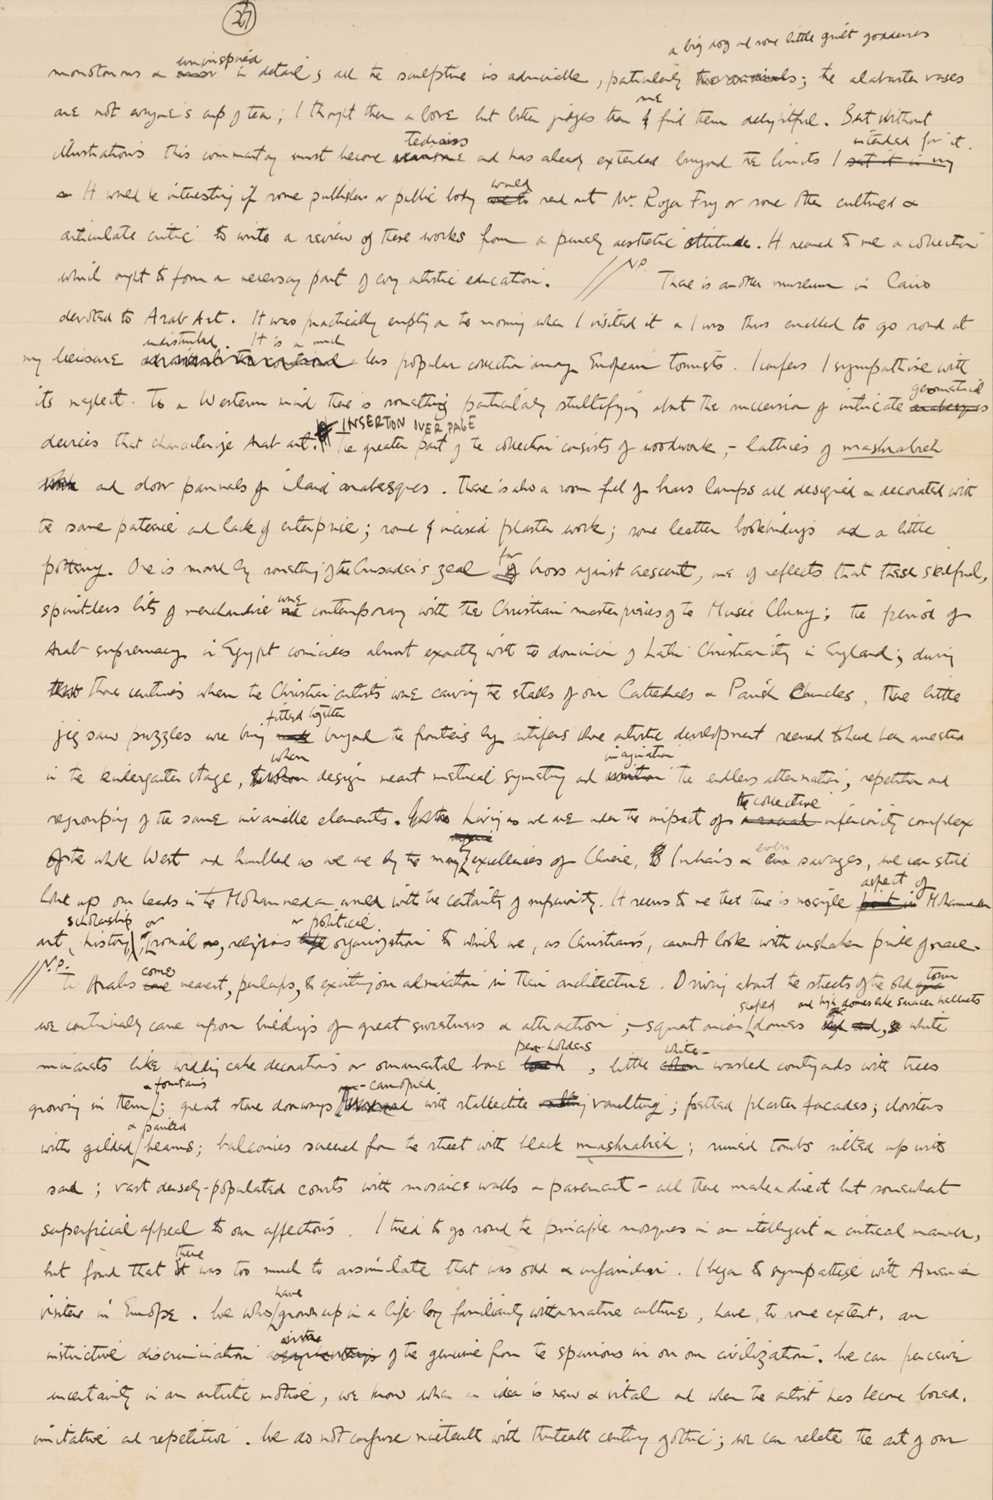 27
a big dog and some little gilt goddesses
uninspired
monotonous & in detail; all the sculpture is admirable, particularly; the alabaster vases
me
are not everyone's cup of tea; I thought them a love but better judges than I find them delightful. But without
tedious intended for it.
illustrations this commentary must become and has already extended beyond the limits I set it in my
would
& It would be interesting if some publisher or public body send out Mr. Roger Fry or some other cultured &
articulate critic to write a review of these works from a purely aesthetic attitude. It seemed to me a collection
which ought to form a necessary part of any artistic education. // N.P. There is another museum in Cairo
devoted to Arab Art. It was practically empty on the morning when I visited it & I was thus enabled to go round at
undisturbed. It is a much
my leisure less popular collection among European tourists. I confess I sympathise with
geometrical
its neglect. To a Western mind there is something particularly stultifying about the succession of intricate arabesques
INSERTION OVER PAGE
devices that characterize Arab art. The greater part of the collection consists of woodwork, - lattices of mashrabieh
work and door pannels of inlaid arabesques. There is also a room full of brass lamps all designed & decorated with
the same patience and lack of enterprise; some incised plaster work; some leather bookbindings and a little
for
pottery. One is moved by something of the Crusader's zeal of cross against crescent, as one reflects that these skilful,
were
spiritless bits of merchandise contemporary with the Christian masterpieces of the Musée Cluny; the period of
Arab supremacy in Egypt coincides almost exactly with the dominion of Latin Christianity in England; during
those centuries when the Christian artists were carving the stalls of our Cathedrals & Parish Churches, these little
fitted together
jig saw puzzles were being made beyond the frontiers by artificers whose artistic development seemed to have been arrested
when imagination
in the kindergarten stage, design meant metrical symmetry and the endless alternation, repetition and
the collective
regrouping of the same invariable elements. Living as we are under the impact of inferiority complex
even
of the whole West and humbled as we are by the many excellencies of Chinese, Indians & savages, we can still
aspect of
hold up our heads in the Mohammedan world with the certainty of superiority. It seems to me that there is no single Mohammedan
scholarship or or political
art, history, social, religious organization to which we, as Christians, cannot look with unshaken pride of race.
N.P. come town
// The Arabs nearest, perhaps, to exciting our admiration in their architecture. Driving about the streets of the old
shaped and high domes like Saracen helmets
we continually came upon buildings of great sweetness & attraction; - squat onion domes, white
pen-holders white-
minarets like wedding cake decorations or ornamental bone, little washed courtyards with trees
& fountains -canopied
growing in them; great stone doorways with stallectite vaulting; fretted plaster facades; cloisters
& painted
with gilded beams; balconies screened from the street with black mashrabieh; ruined tombs silted up with
sand; vast densely-populated courts with mosaic walls & pavement - all these make a direct but somewhat
superficial appeal to our affections. I tried to go round the principle mosques in an intelligent & critical manner,
there
but found that it was too much to assimilate that was odd & unfamiliar. I began to sympathise with American
have
visitors in Europe. We who grown up in a life long familiarity with native culture, have, to some extent, an
instinctive discrimination of the genuine from the spurious in our own civilization. We can perceive
uncertainty in an artistic motive, we know when an idea is new & vital and when the artist has become bored,
imitative and repetitive. We do not confuse nineteenth with thirteenth century gothic; we can relate the art of our